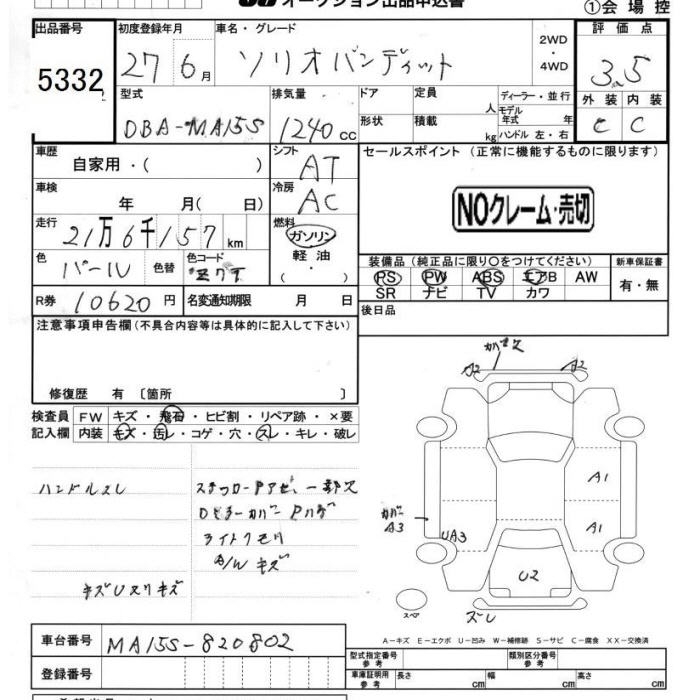 オークション出品申込書
①会場控
出品番号 初度登録年月 車名・グレード 2WD・4WD 評価点
5332 27 6月 ソリオバンディット 3.5
型式 排気量 ドア 定員 人 ディーラー・並行
モデル年式 年
外装 内装
DBA-MA15S 1240cc 形状 積載 kg ハンドル 左・右 C C
車歴 シフト セールスポイント(正常に機能するものに限ります)
自家用・( ) AT
車検 冷房
年 月( 日) AC
NOクレーム・売切
走行 燃料
21万6千157km ガソリン
軽油
・( )
色 パール 色替 色コード
装備品(純正品に限り○をつけてください) 新車保証書
PS PW ABS エアB AW 有・無
SR ナビ TV カワ
R券 10620円 名変通知期限 月 日
後日品
注意事項申告欄(不具合内容等は具体的に記入して下さい)
修復歴 有〔箇所 〕
検査員 FW キズ・飛石・ヒビ割・リペア跡・×要
記入欄 内装 キズ・汚レ・コゲ・穴・スレ・キレ・破レ
ハンドルスレ
ライトクモリ
A/W キズ
A1
カバー
A3
UA3
A1
U2
スペア
ズレ
A-キズ E-エクボ U-凹み W-補修跡 S-サビ C-腐食 XX-交換済
車台番号 MA15S-820802
登録番号
型式指定番号 参考 類別区分番号 参考
車庫証明用 参考 長さ cm 幅 cm 高さ cm